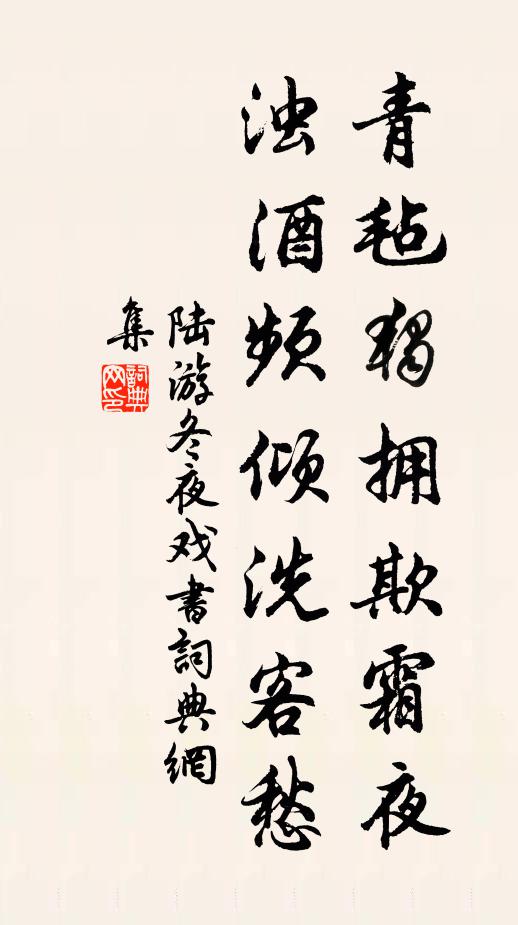 青毡独拥欺霜夜
浊酒频倾洗客愁
陆游冬夜戏书詞典網
集
詞典
网印